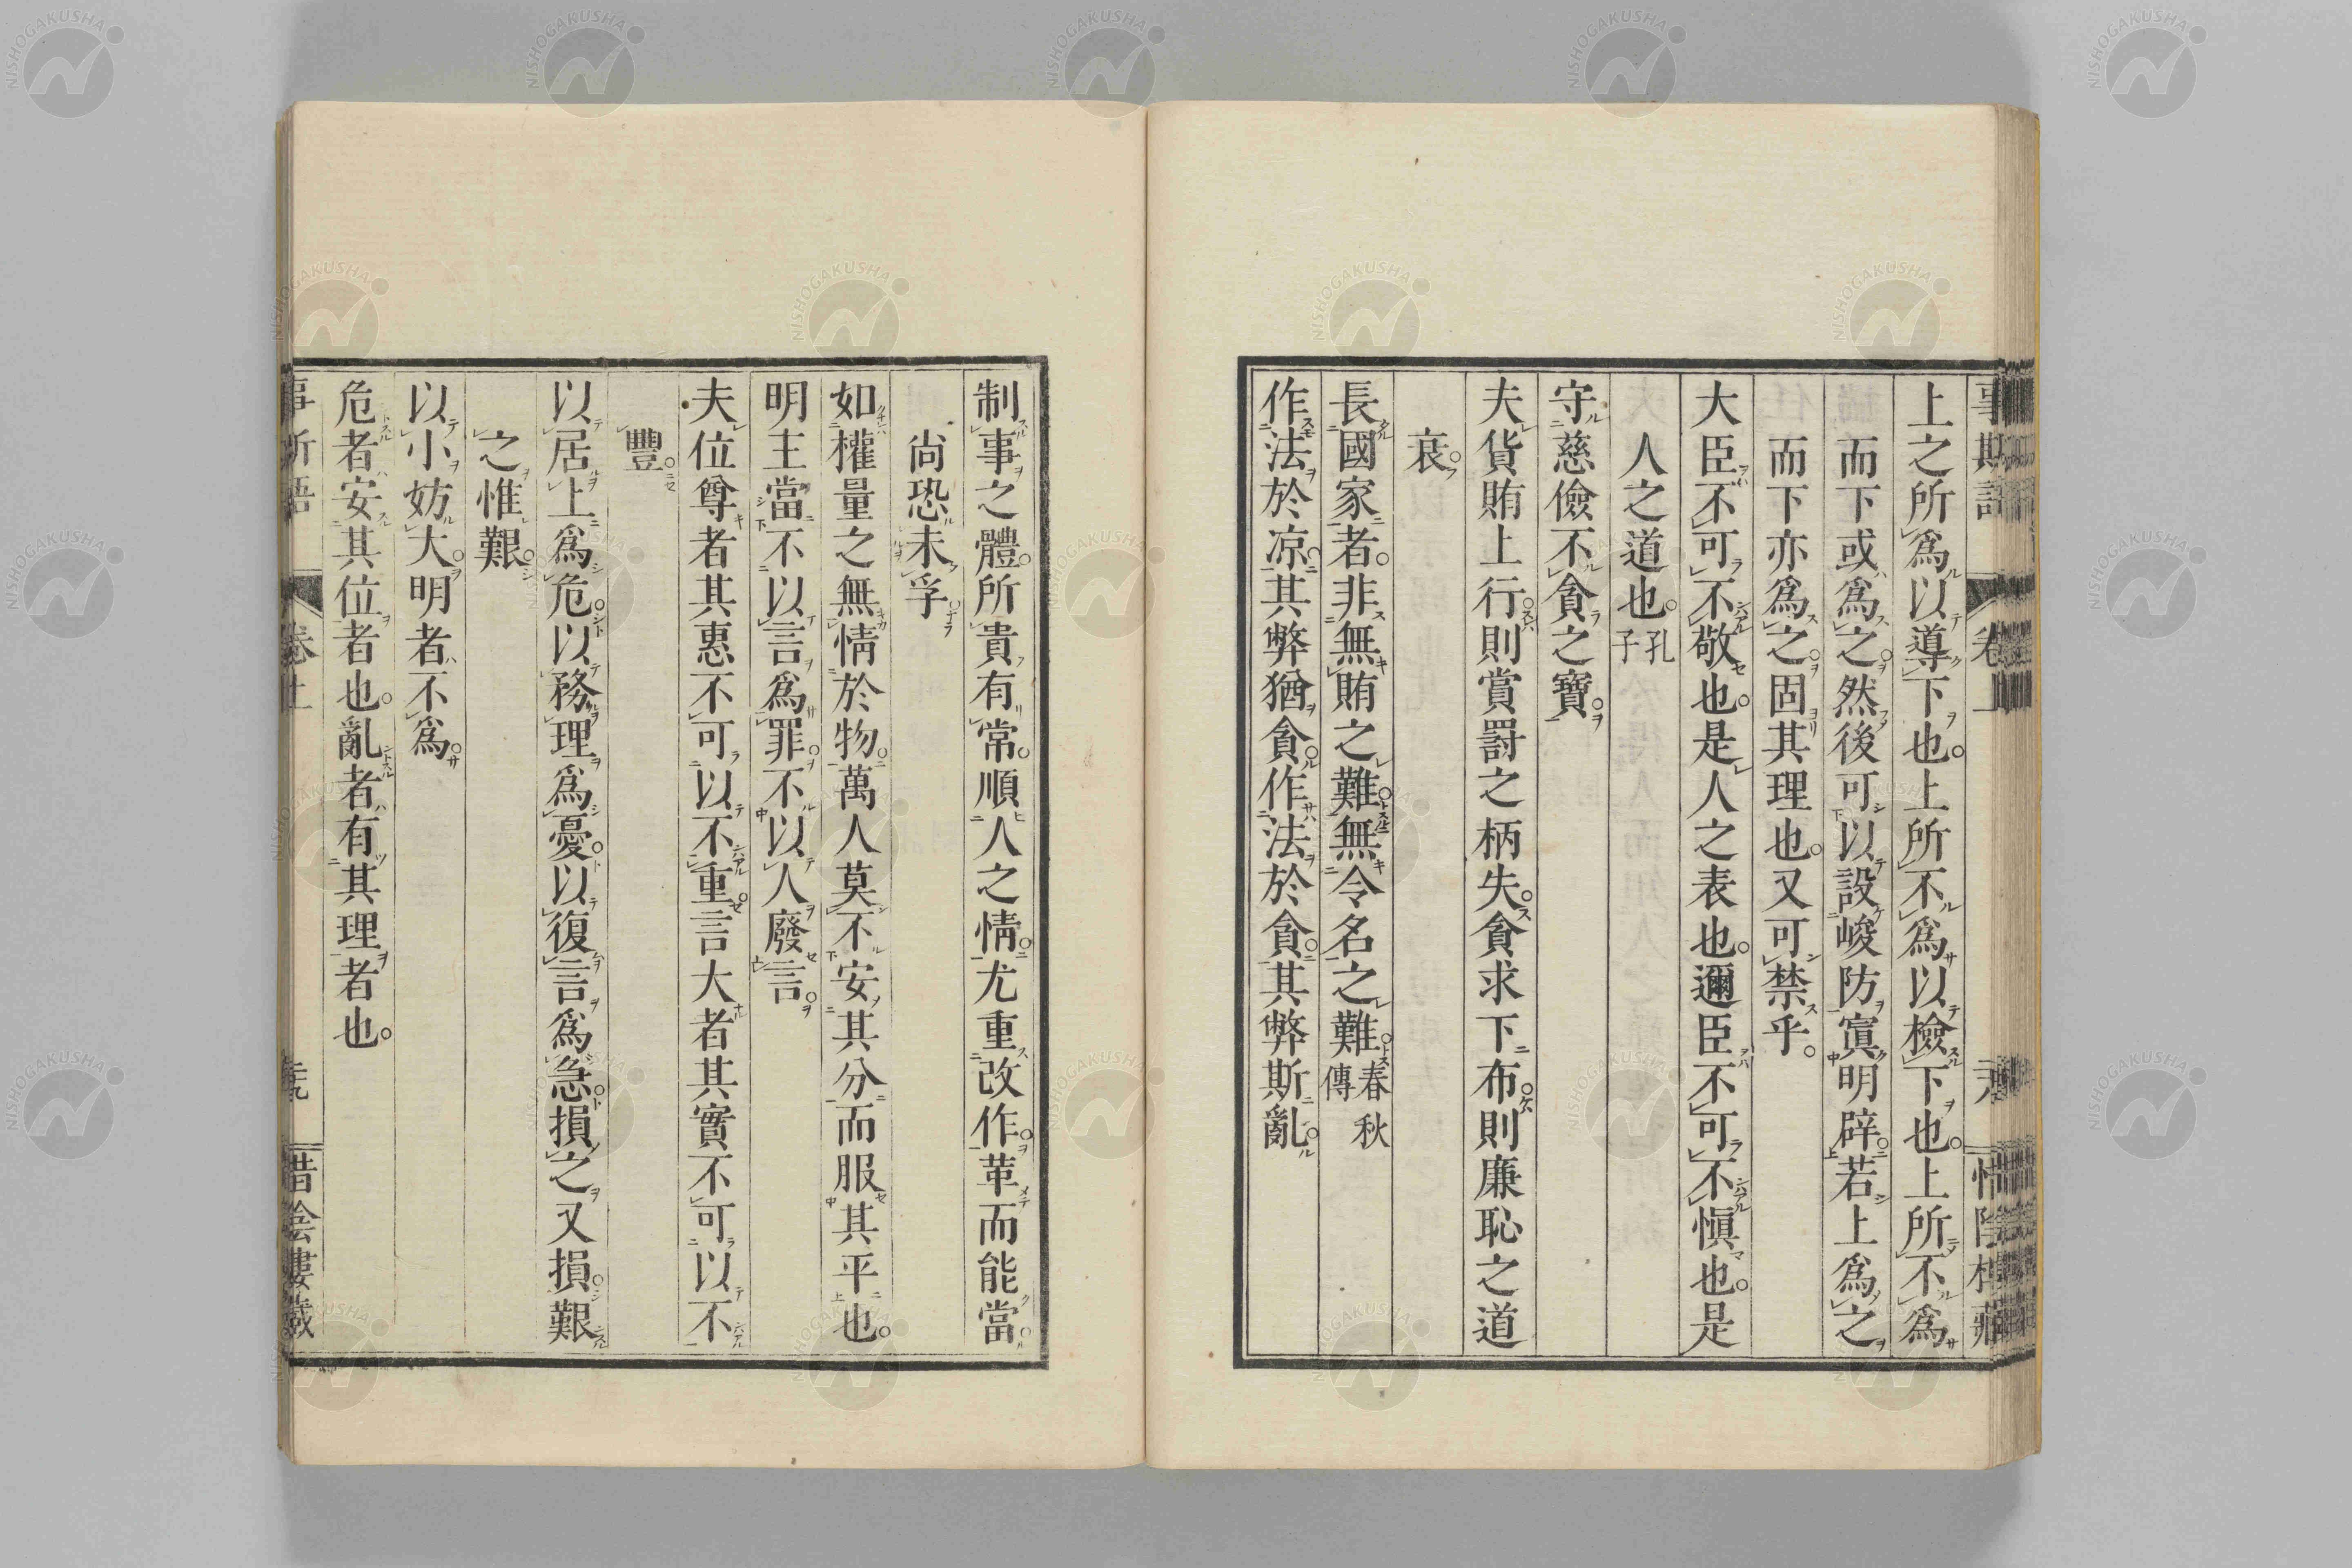 上之所爲以導下也。上所不爲以檢下也。上所不爲
而下或爲之。然後可以設峻防寘明辟。若上爲之
而下亦爲之。固其理也。又可禁乎。
大臣不可不敬也。是人之表也。邇臣不可不愼也。是
人之道也。孔子
守慈儉不貪之寶。
夫貨賄上行則賞罰之柄失。貪求下布則廉恥之道
衰。
長國家者。非無賄之難。無令名之難。春秋傳
作法於凉。其弊猶貪。作法於貪。其弊斯亂。
制事之體。所貴有常。順人之情。尤重改作。革而能當。
尚恐未孚。
如權量之無情於物。萬人莫不安其分而服其平也。
明主當不以言爲罪。不以人廢言。
夫位尊者其惠不可以不重。言大者其實不可以不
豐。
以居上爲危。以務理爲憂。以復言爲急。損之又損。艱
之惟艱。
以小妨大。明者不爲。
危者安其位者也。亂者有其理者也。
卷上
NISHOGAKUSHA